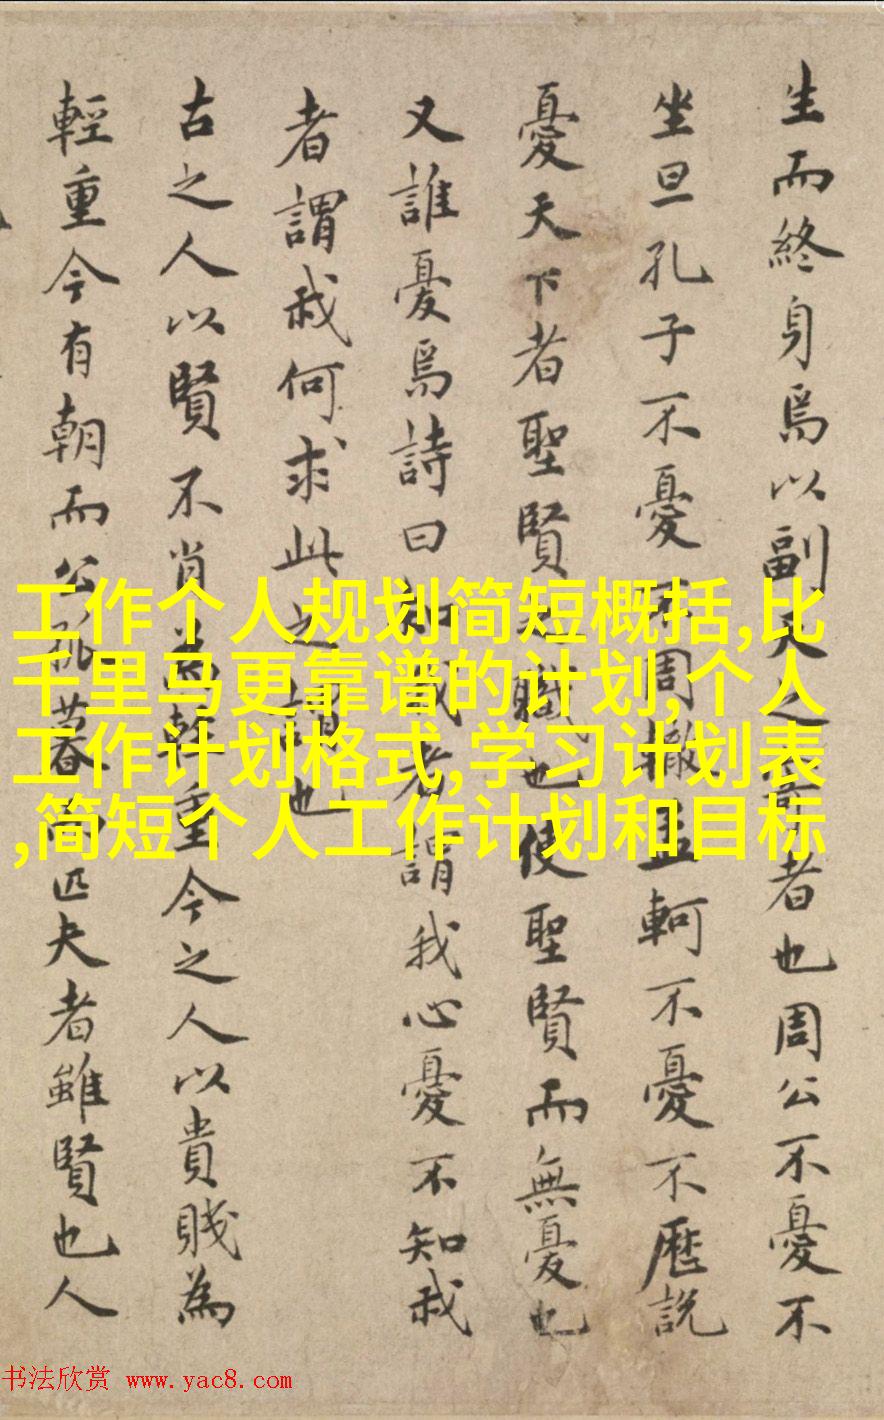 生而終身焉以副天之者也周公不憂不
坐旦孔子不憂不周轍孟軻不憂不歷説
憂天下者聖賢之職也使聖賢而無憂也
又誰憂焉詩曰知我者謂我心憂不知我
者謂我何求此之謂也
古之人以賢不肖為輕重今之人以貴賤為
輕重今有朝而公孤暮而匹夫者雖賢也人
工作个人规划简短概括,比
千里马更靠谱的计划,个人
工作计划格式,学习计划表
,简短个人工作计划和目标
书法欣赏 www.yac8.com